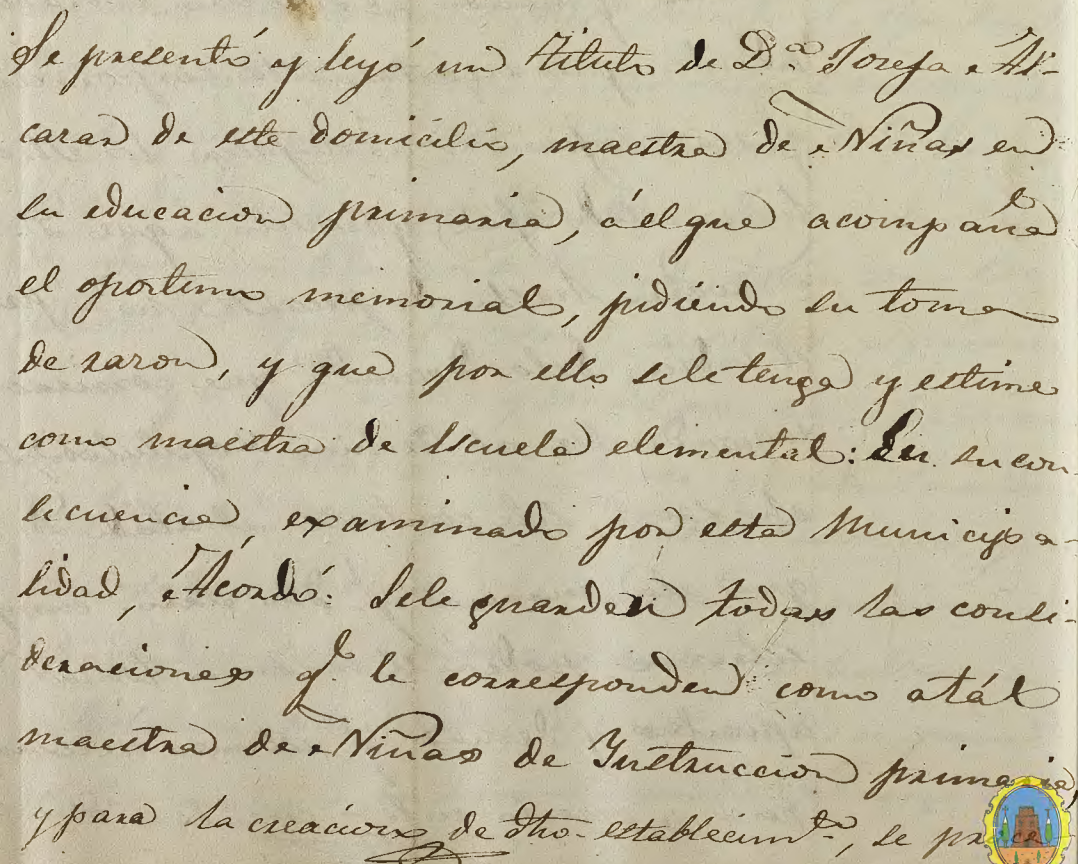 Se presentó y leyó un titulo de D.ª Josefa Al-
caraz de este domicilio, maestra de Niñas en
su educacion primaria, á el que acompaña
el oportuno memorial, pidiendo su toma
de razon, y que por ello sele tenga y estime
como maestra de Escuela elemental: En su con
secuencia, examinado por esta Municipa-
lidad, Acordó: Sele guarden todas las consi-
deraciones q.e le corresponden como atál
maestra de Niñas de Instruccion primaria,
y para la creacion de dho establecim.to, se proce